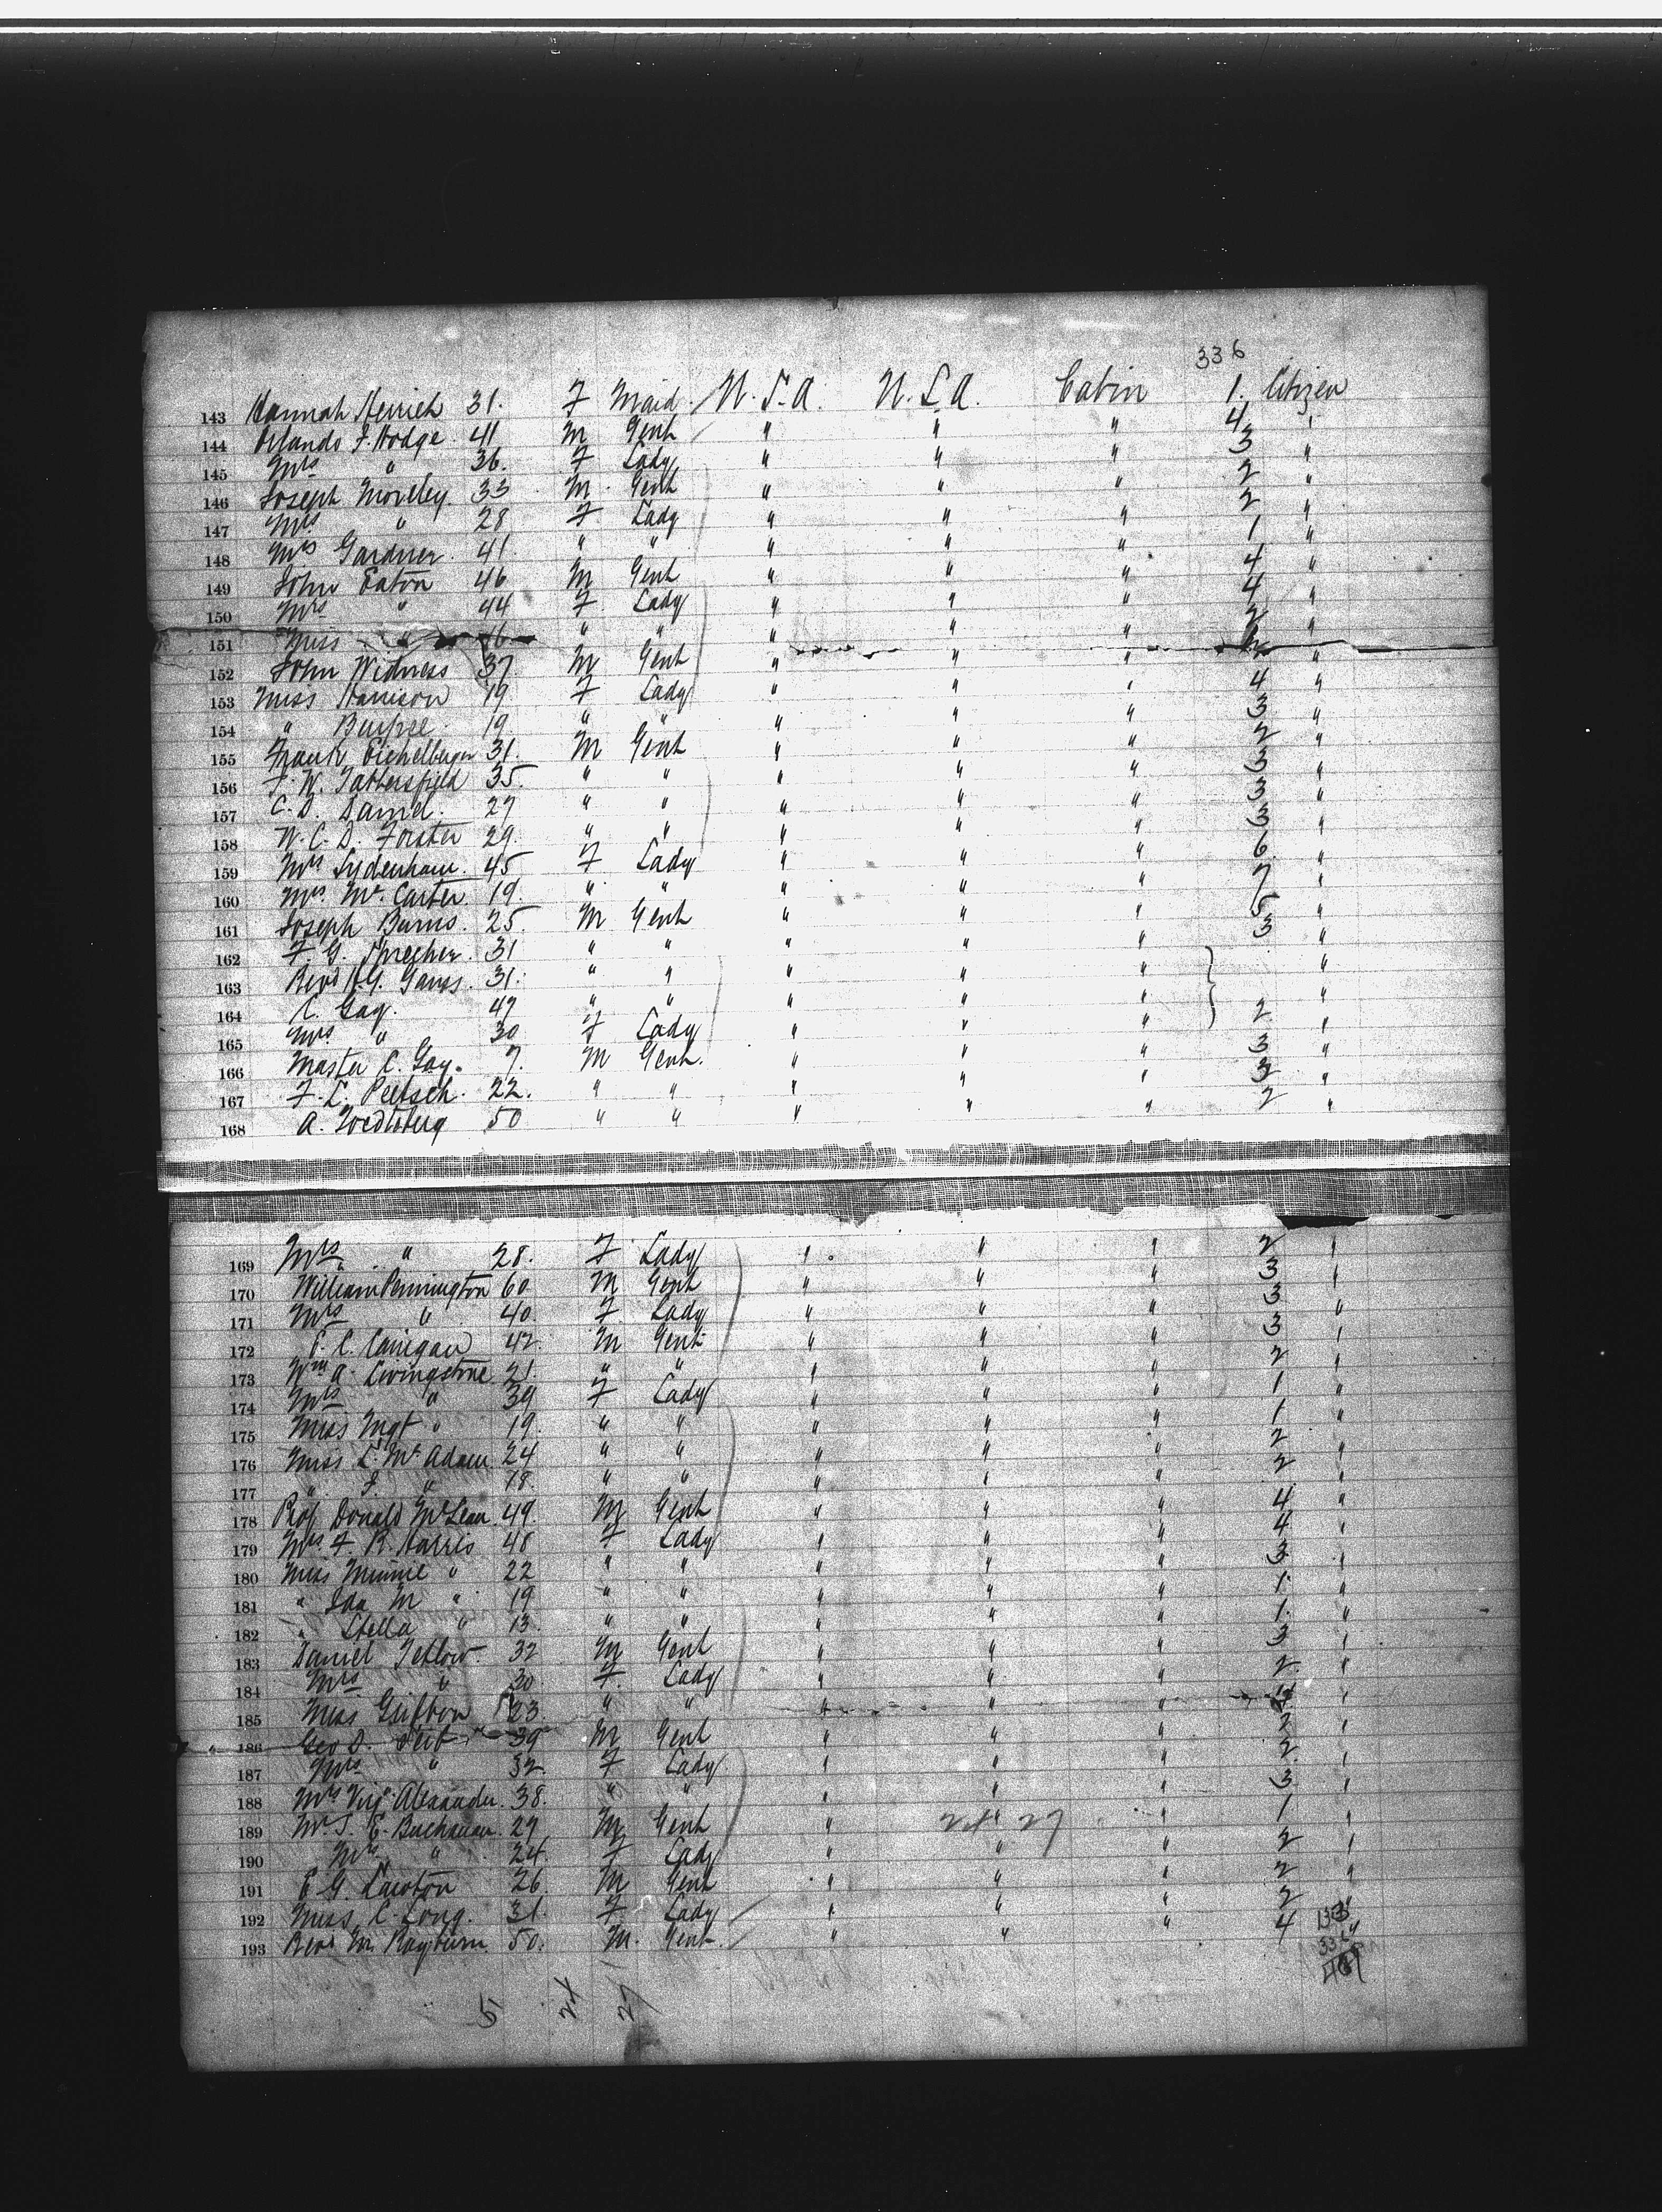 336
143 Hannah Herrich 31. F Maid. U.S.A. U.S.A. Cabin 1. Citizen
144 Orlando J. Hodge. 41 M Gent " " " 4. "
145 Mrs " 36. F Lady " " " 3 "
146 Joseph Moreley. 33 M. Gent " " " 2 "
147 Mrs " 28 F Lady " " " 2 "
148 Mrs Gardner. 41. " " " " " 1 "
149 John Eaton 46 M Gent " " " 4 "
150 Mrs " 44 F. Lady " " " 4 "
151 Miss " 16 " " " " " 2 "
152 John Widness 37 M Gent " " "
153 Miss Harrison 19 F Lady " " " 4 "
154 " 19 " " " " " 3 "
155 Frank Eichelberger 31. M Gent " " " 2 "
156 F. W. Tattersfield 35. " " " " " 3 "
157 C. D. Daniel. 27 " " " " " 3 "
158 W. C. D. Forster 29. " " " " " 3 "
159 Mrs Sydenham. 45 F Lady " " " 6. "
160 Mrs. Mc. Carter 19. " " " " " 7 "
161 Joseph Burns. 25. M Gent " " " 5 "
162 F. G. Sprecher. 31 " " " " " 3 "
163 Revd H.G. Ganss. 31. " " " " " "
164 C. Gay. 47 " " " " " "
165 Mrs " 30 F Lady " " " 2 "
166 Master C. Gay. 7. M Gent. " " " 3 "
167 F. L. Peetsch. 22. " " " " " 3 "
168 A. 50 " " " " " 2 "
169 Mrs " 28. F Lady " " " 2 "
170 William Pennington 60 M Gent " " " 3 "
171 Mrs " 40. F. Lady " " " 3 "
172 Canegan 42. M Gent " " " 3 "
173 Wm A. Livingstone 21. " " " " " 2 "
174 Mrs " 39 F Lady " " " 1 "
175 Miss Mgt " 19. " " " " " 1 "
176 Miss L. Mc Adam. 24 " " " " " 2 "
177 " J. " 18. " " " " " 2 "
178 Prof Donald McLean. 49. M Gent " " " 4 "
179 Mrs F. R. Harris 48 F Lady " " " 4. "
180 Miss Minnie " 22 " " " " " 3. "
181 " Ida M " 19 " " " " " 1. "
182 " Stella " 13. " " " " " 1. "
183 Daniel Tetlow. 32 M Gent " " " 3 "
184 Mrs " 30 F. Lady " " " 2. "
185 Miss Gribbon 23. " " " " " "
186 Geo D. 39 M Gent " " " 2 "
187 Mrs " 32. F Lady " " " 2. "
188 Mrs Virg. Alexander. 38. " " " " " 3 "
189 Mr. J. E. Buchanan. 29 M Gent " " " 1 "
24 27
190 Mrs " 24. F Lady " " " 2 "
191 E. G. Lawton 26 M Gent " " " 2 "
192 Miss C. Long. 31. F Lady " " " 2 "
193 Revd Wm Rayburn. 50. M. Gent. " " " 4 "
5 24 27